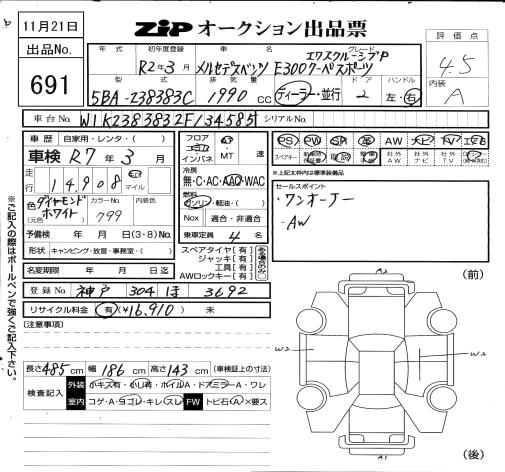 11月21日
ZIP オークション出品票
出品No.
691
年式 初年度登録 車名 グレード 評価点
R2年3月 メルセデスベンツ E300クーペスポーツ エクスクルーシブP 4.5
型式 排気量 ドア ハンドル 内装
5BA-238383C 1990 cc ディーラー・並行 2 左・右 A
車台No. W1K2383832F134585 シリアルNo.
車歴 自家用・レンタ・( )
車検 R7年3月
走行 14,908 km マイル
色 ダイヤモンドホワイト カラーNo. 799 内装色
(元色)
予備検 年 月 日(3・8)No.
形状 キャンピング・放置・事務室・( )
名変期限 年 月 日迄
登録No. 神戸 304 ほ 3692
リサイクル料金 有(¥16,910) 未
(注意事項)
フロア コラム インパネ AT MT 速
冷房 無・C・AC・AAC・WAC
燃料 ガソリン・軽油・( )
Nox 適合・非適合
乗車定員 4名
スペアタイヤ【有】
ジャッキ【有】
工具【有】
AWロックキー【有】
ある場合のみ○
PS PW SR 革 AW ナビ TV エアB
スペアキー 保証書 取説 記録簿 社外AW 社外ナビ 社外TV
※上記太枠内は標準装備品
セールスポイント
・ワンオーナー
・AW
(前)
A2
W2 W2
A2
(後)
長さ485cm 幅186cm 高さ143cm (車検証上の寸法)
検査記入 外装 小キズ有・小凹有・ホイルA・ドアミラーA・ワレ
室内 コゲ・A・ヨゴレ・キレ・スレ FW トビ石・A・×要ス
※ご記入の際はボールペンで強くご記入下さい。